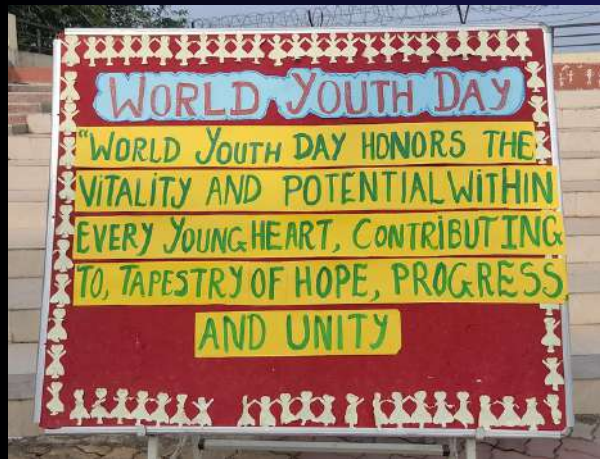 WORLD YOUTH DAY
"WORLD YOUTH DAY HONORS THE
VITALITY AND POTENTIAL WITHIN
EVERY YOUNG HEART, CONTRIBUTING
TO, TAPESTRY OF HOPE, PROGRESS
AND UNITY